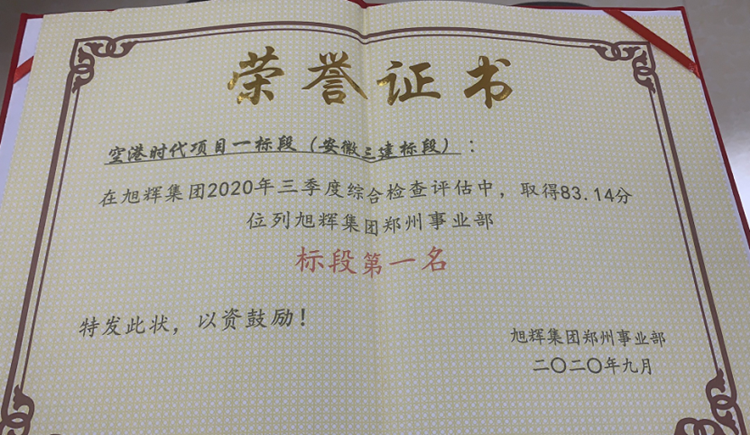 荣誉证书
空港时代项目一标段（安徽三建标段）：
在旭辉集团2020年三季度综合检查评估中，取得83.14分
位列旭辉集团郑州事业部
标段第一名
特发此状，以资鼓励！
旭辉集团郑州事业部
二〇二〇年九月